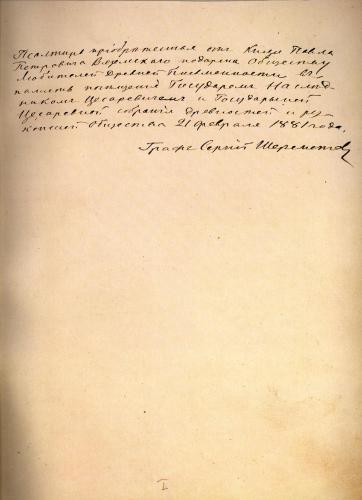 Псалтирь пріобрѣтенная отъ Князя Павла
Петровича Вяземскаго подарена Обществу
Любителей Древней Письменности въ
память посѣщенія Государемъ Наслѣд-
никомъ Цесаревичемъ и Государыней
Цесаревной собранія древностей и ру-
кописей Общества 21 Февраля 1881 года.
Графъ Сергій Шереметевъ
I